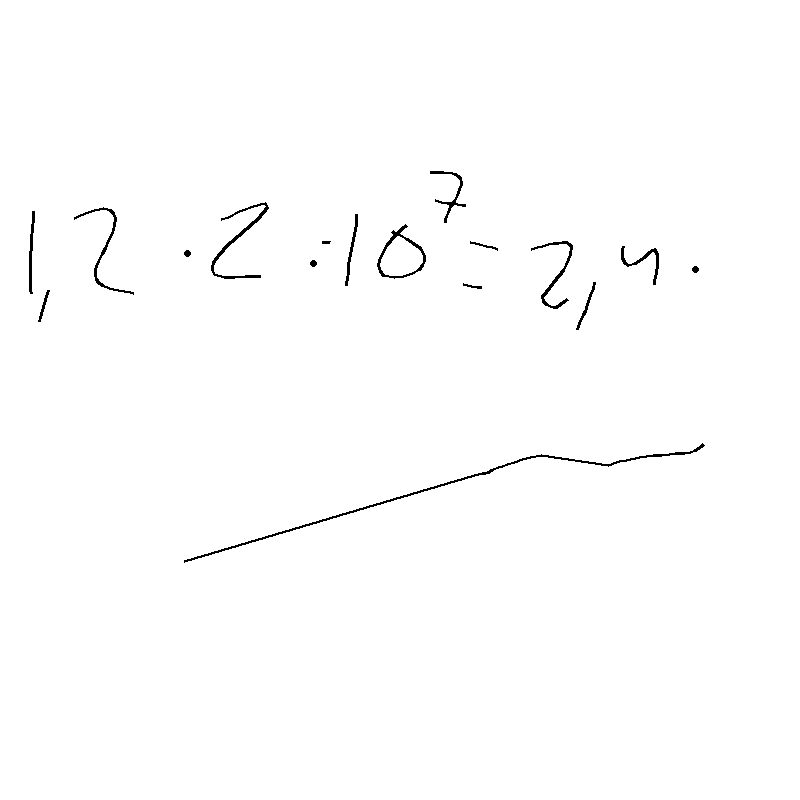 1,2 · 2 · 10⁷ = 2,4 ·